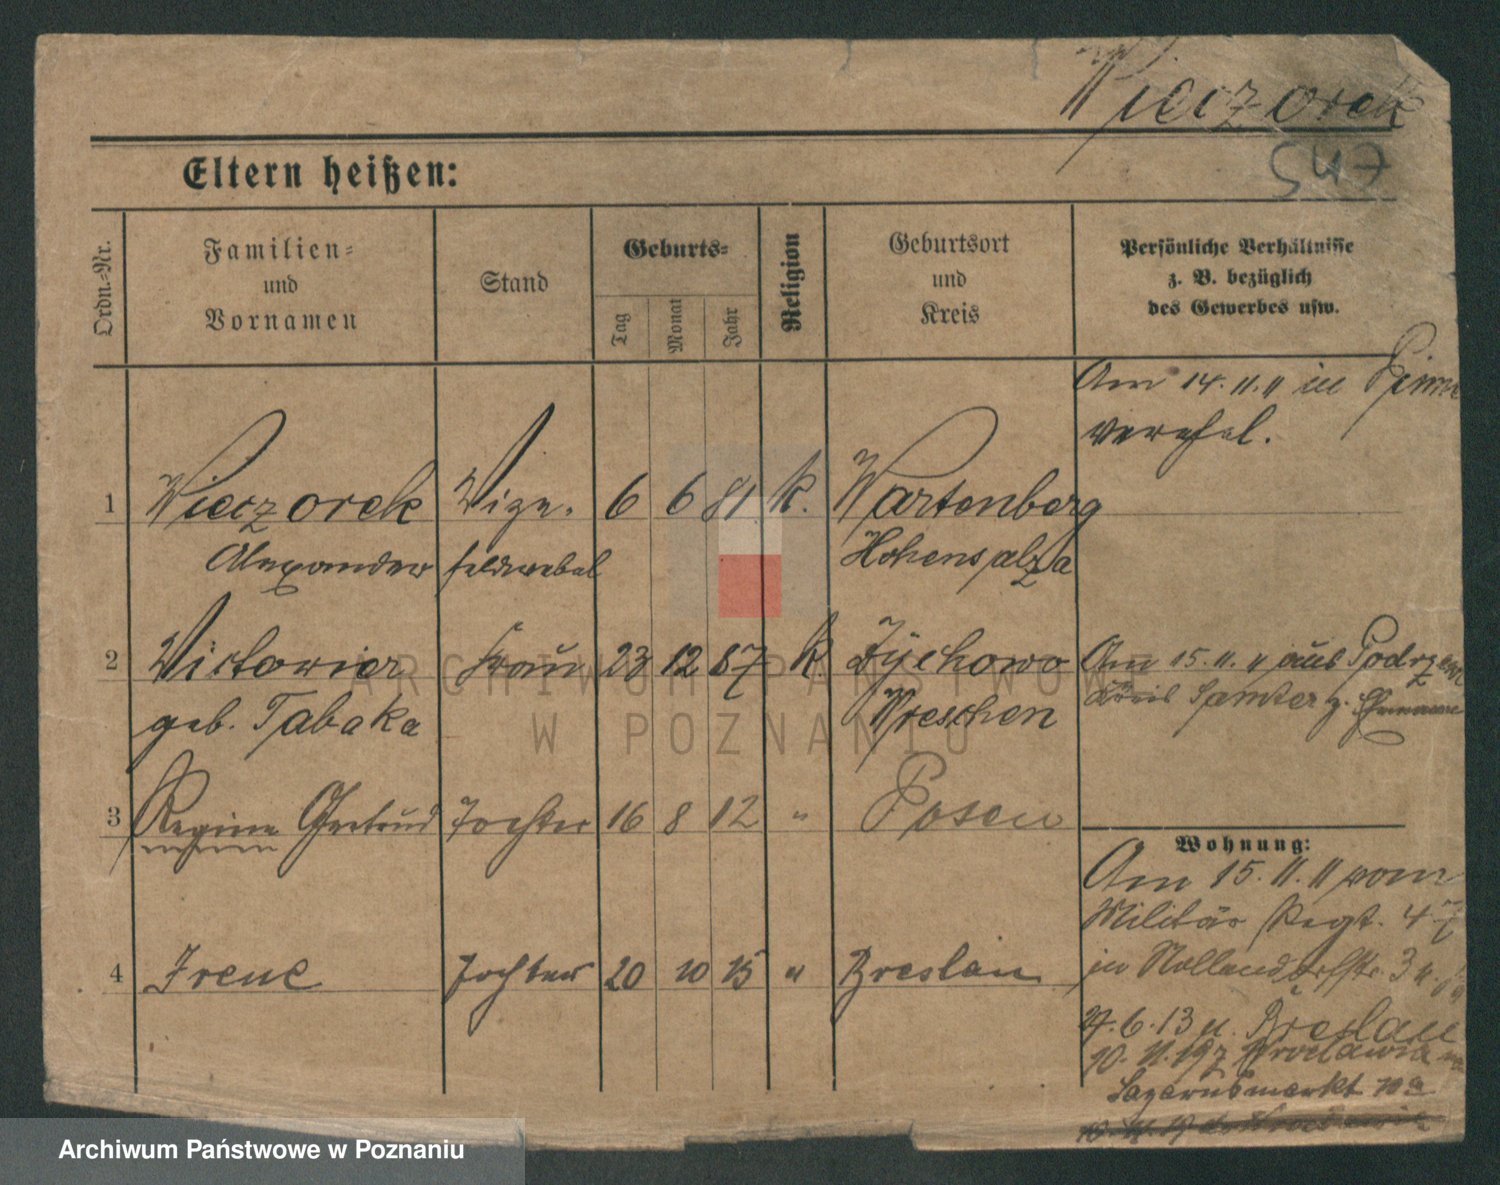 Wieczorek
547
Eltern heißen:
Ordn.-Nr.
Familien-
und
Vornamen
Stand
Geburts-
Tag
Monat
Jahr
Religion
Geburtsort
und
Kreis
Persönliche Verhältnisse
z. B. bezüglich
des Gewerbes usw.
Am 14.11.11 in
verehel.
1 Wieczorek Vize- 6 6 81 K. Wartenberg
Alexander feldwebel Hohensalza
2 Victoria Frau 23 12 87 K. Zychowo Am 15.11.11 aus Podrzewe
geb. Tabaka Wreschen Kreis Samter z.
3 Regina Gertrud Tochter 16 8 12 " Posen
Wohnung:
Am 15.11.11 vom
Militär Regt. 47
in Nollendorfstr. 3
4 Irene Tochter 20 10 15 " Breslau
24.6.13 n. Breslau
10.11.19 z. Wroclawia
Lazarusmarkt 10a
ARCHIWUM PAŃSTWOWE
W POZNANIU
Archiwum Państwowe w Poznaniu